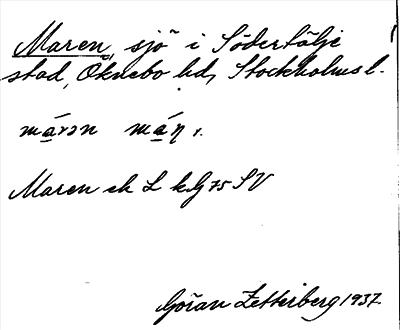 Maren, sjö i Södertälje
stad, Öknebo hd, Stockholms l.
Maren ek L kG 75 SV
Göran Zetterberg 1937.